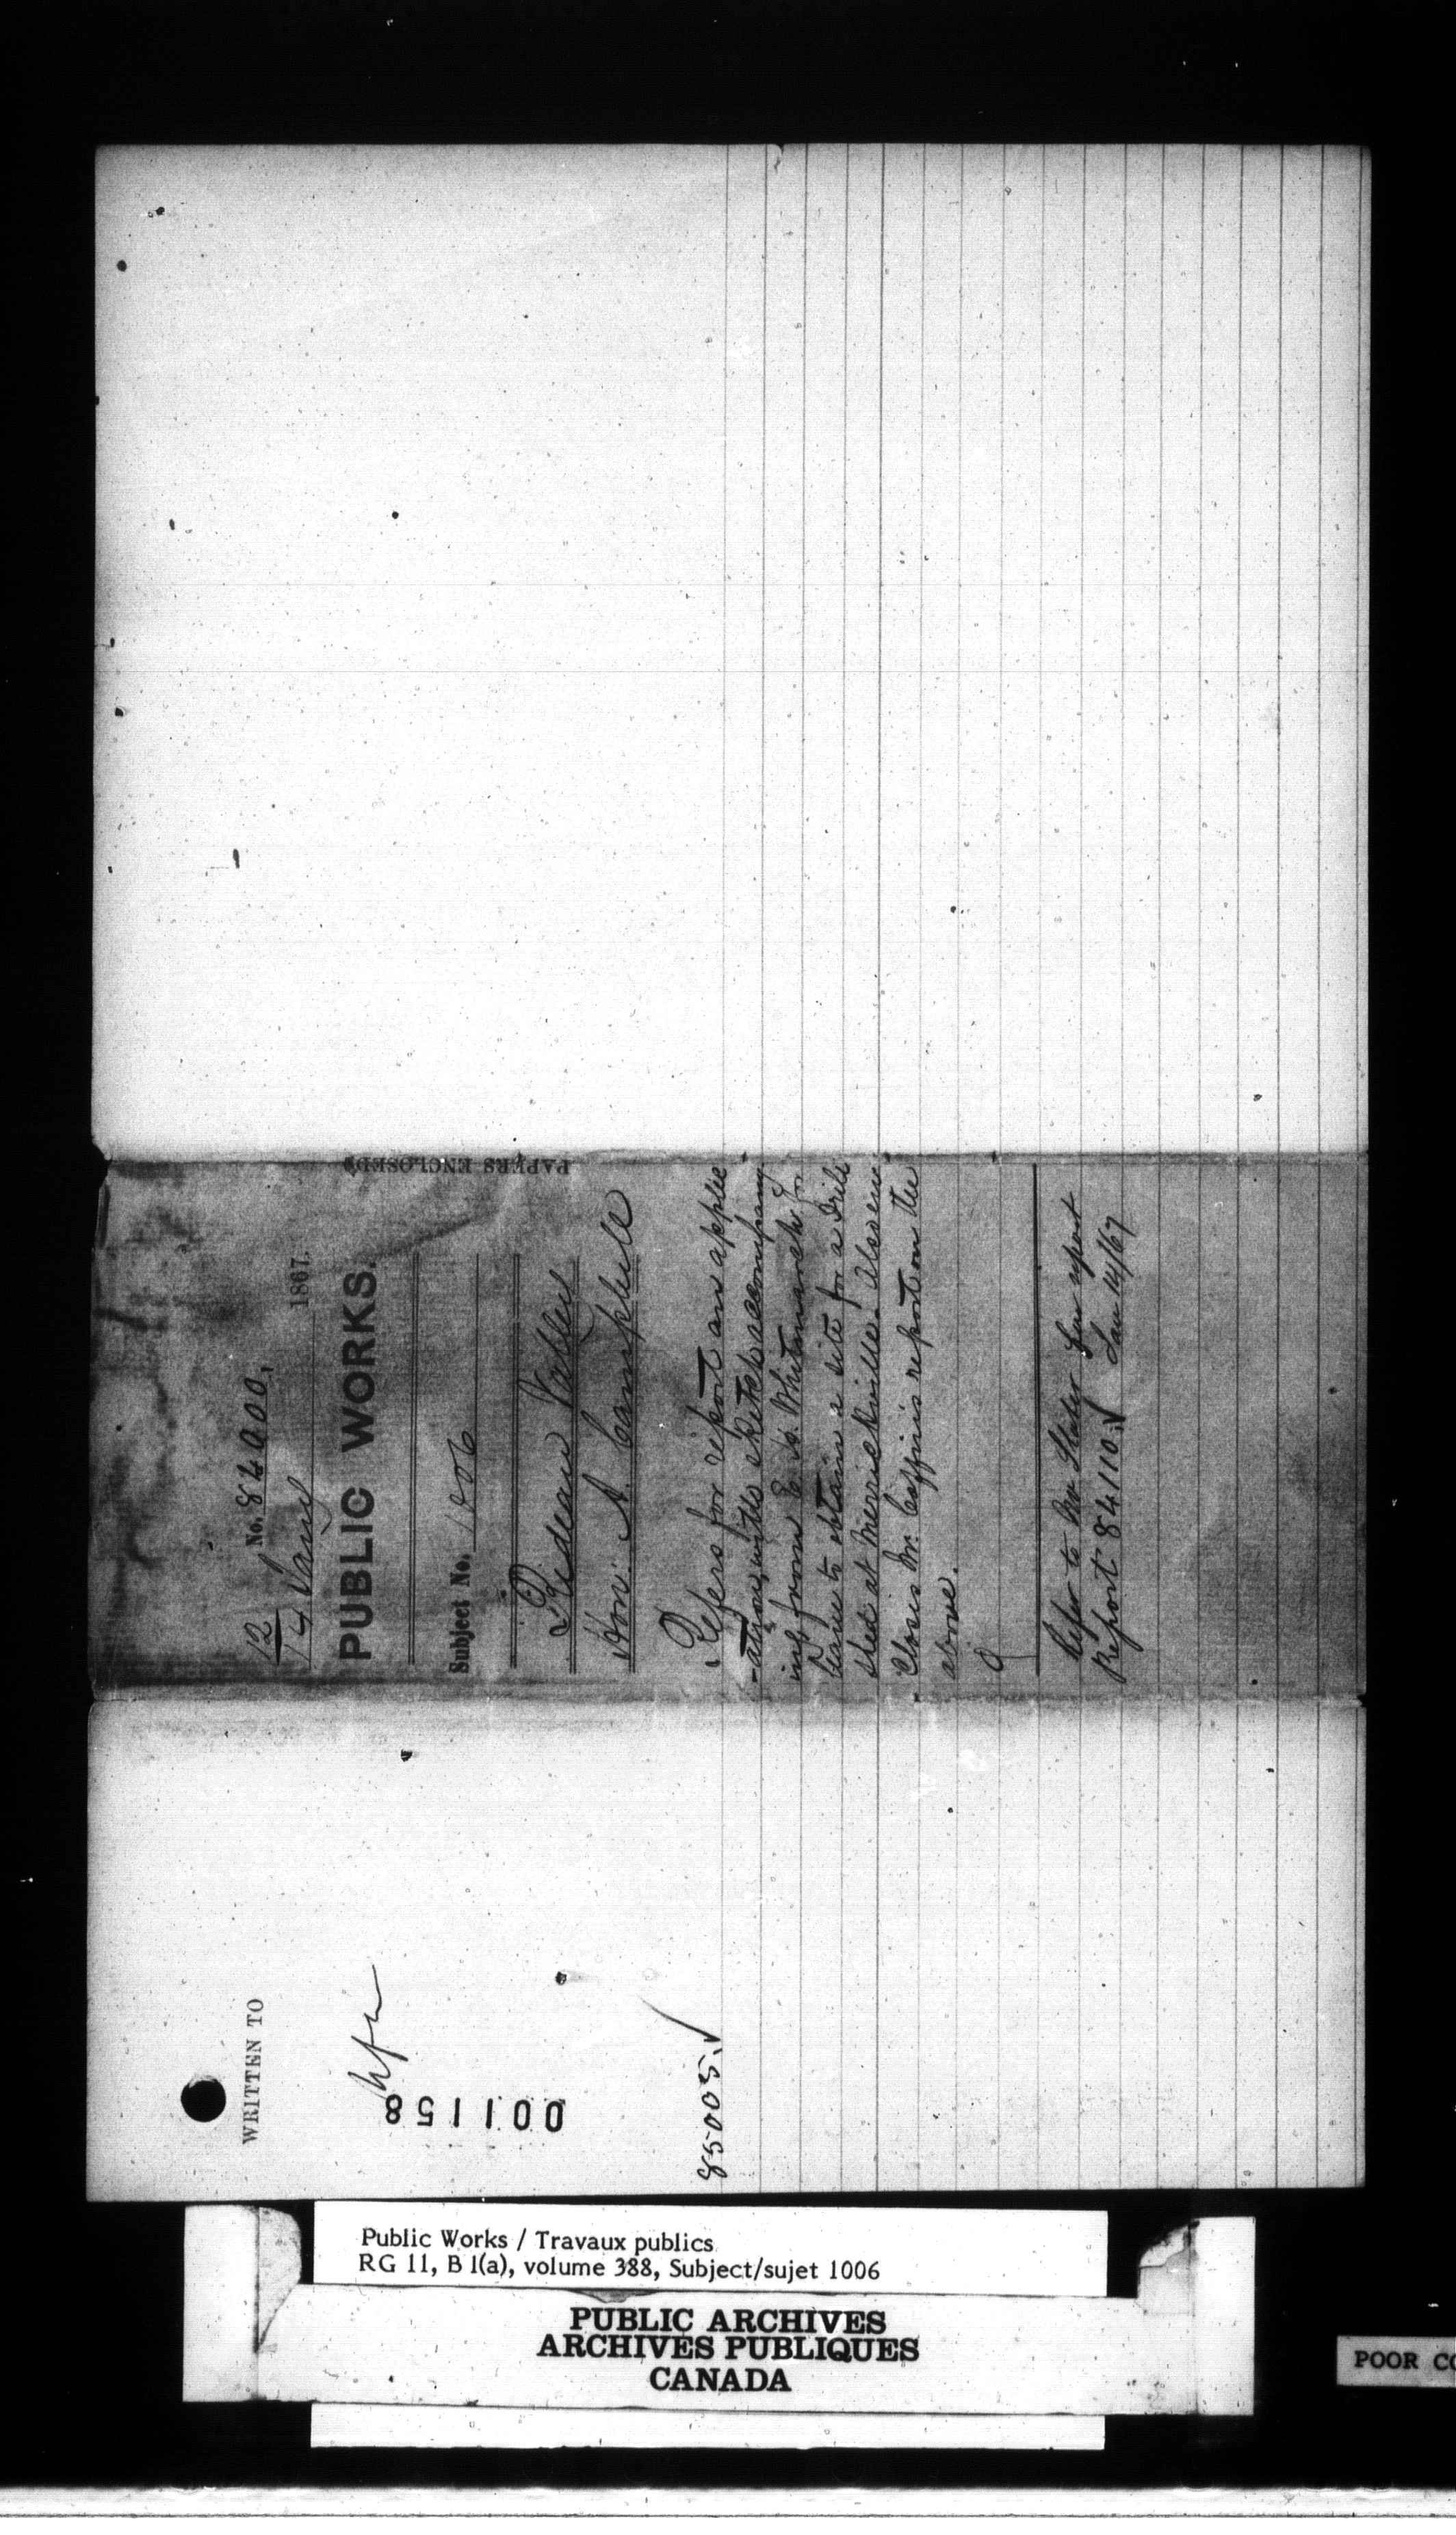 No. 84000.
12
14 Jany 1867.
PUBLIC WORKS.
Subject No. 1006
Rideau Valley
Hon: A. Campbell
Refers for report an applic
-ation, with sketch accompany
ing from E. H. Whitmarsh for
leave to obtain a site for a Drill
shed at Merrickville. Also en
closes Mr. Coffin's report on the
above.
Refer to Mr Slater for report
Jan 14/67
Report 84110 ✓
PAPERS ENCLOSED
WRITTEN TO
001158
85005 ✓
Public Works / Travaux publics
RG 11, B 1(a), volume 388, Subject/sujet 1006
PUBLIC ARCHIVES
ARCHIVES PUBLIQUES
CANADA
POOR CO